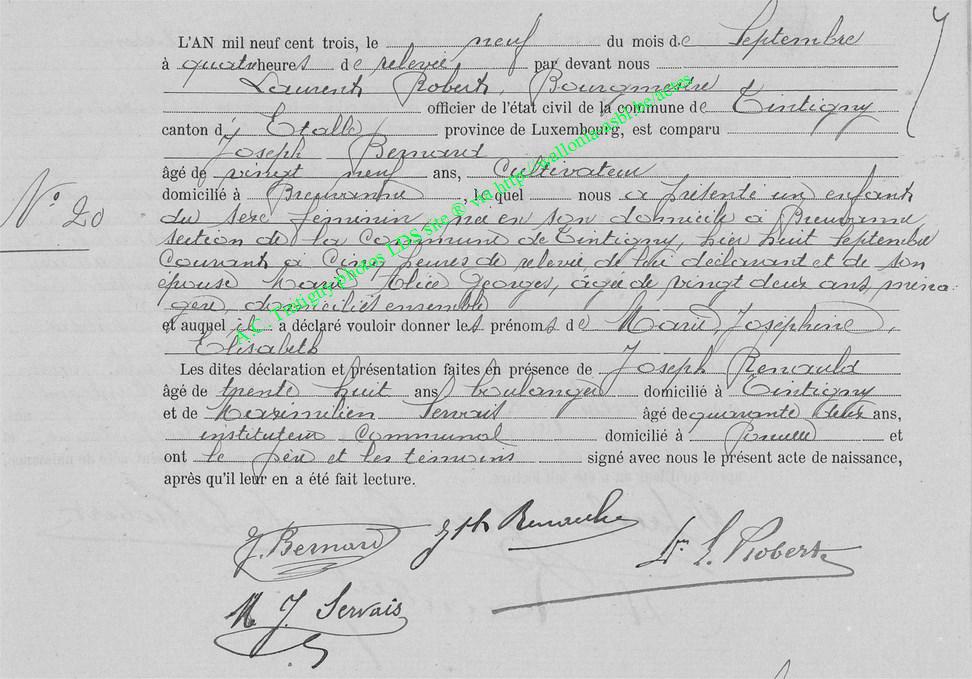 L'AN mil neuf cent trois, le neuf du mois de Septembre
à quatre heures de relevée par devant nous
Laurent Robert, Bourgmestre
officier de l'état civil de la commune de Tintigny
canton d' Etalle, province de Luxembourg, est comparu
Joseph Bernard
âgé de vingt neuf ans, Cultivateur
domicilié à Breuvanne, lequel nous a présenté un enfant
N° 20
du sexe féminin, né en son domicile à Breuvanne
section de la Commune de Tintigny, hier huit Septembre
courant à cinq heures de relevée, de lui déclarant et de son
épouse Marie Alice Georges, âgée de vingt deux ans, ména-
gère, domiciliés ensemble
et auquel il a déclaré vouloir donner les prénoms de Marie Joséphine,
Elisabeth
Les dites déclaration et présentation faites en présence de Joseph Renauld
âgé de trente huit ans boulanger domicilié à Tintigny
et de Maximilien Servais âgé de quarante deux ans,
instituteur communal domicilié à et
ont le père et les témoins signé avec nous le présent acte de naissance,
après qu'il leur en a été fait lecture.
J. Bernard Jph Renauld Dr L. Robert
M. J. Servais
A.C. Tintigny photos LDS site ® via http://gallonia-asbl.be/actes